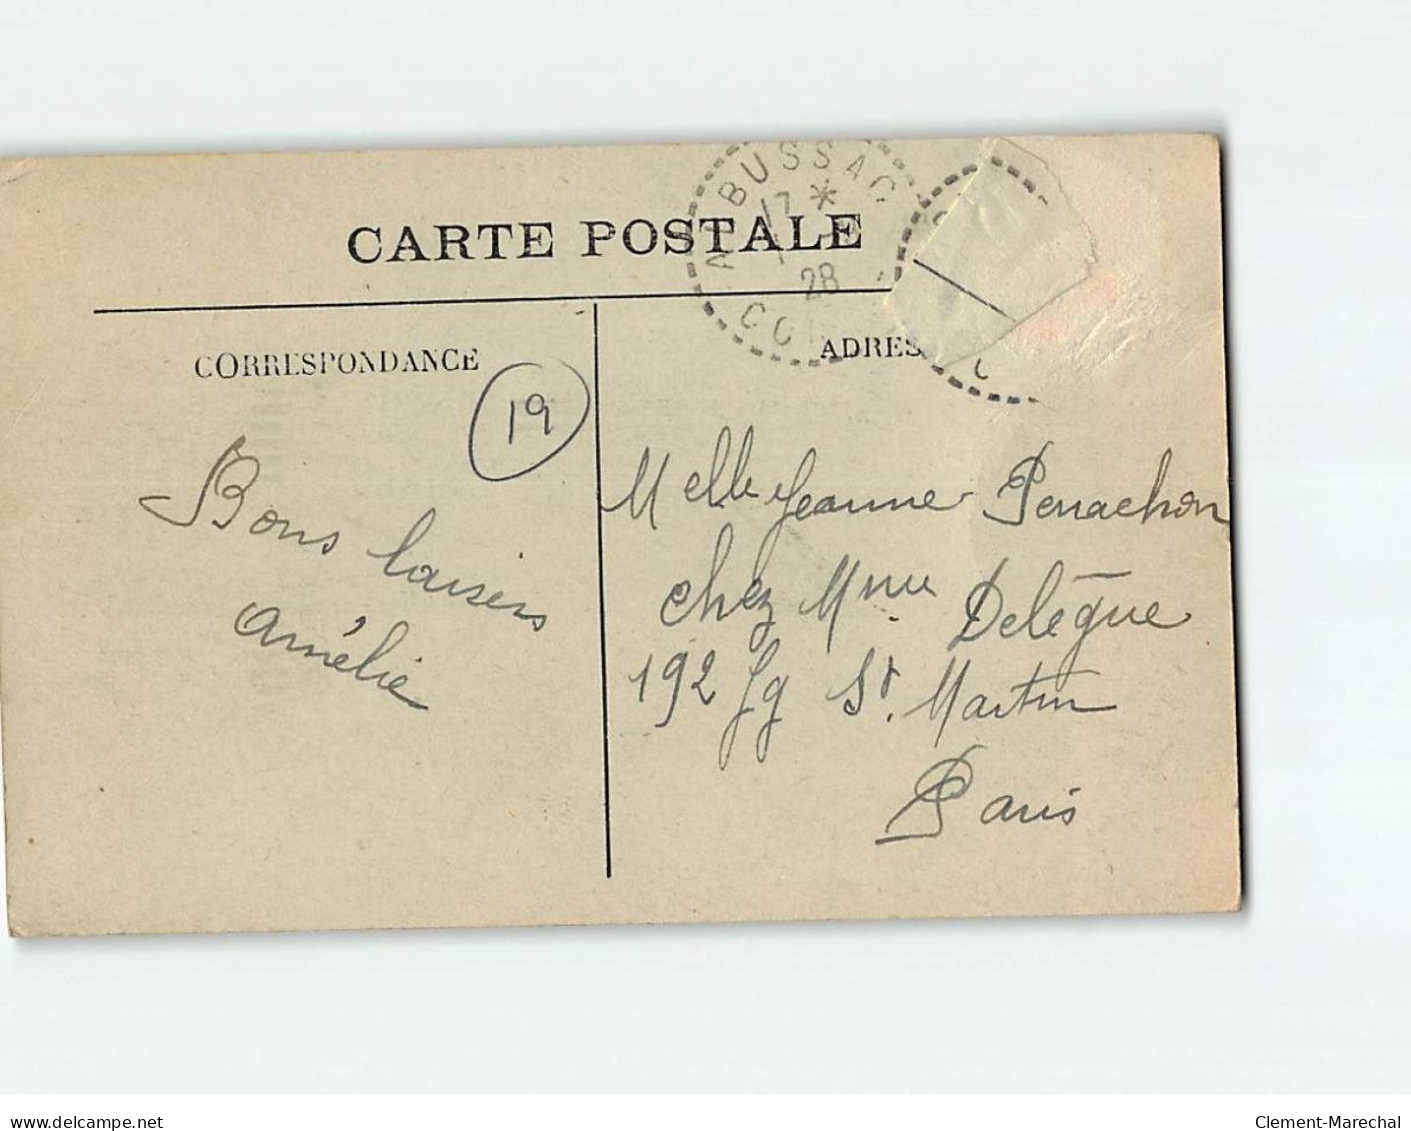 AMBUSSAC
17 *
28
CO
CARTE POSTALE
CORRESPONDANCE
ADRES
19
Bons baisers
Amélie
Melle Jeanne Perrachon
chez Mme Delègue
192 fg St. Martin
Paris
www.delcampe.net
Clement-Marechal